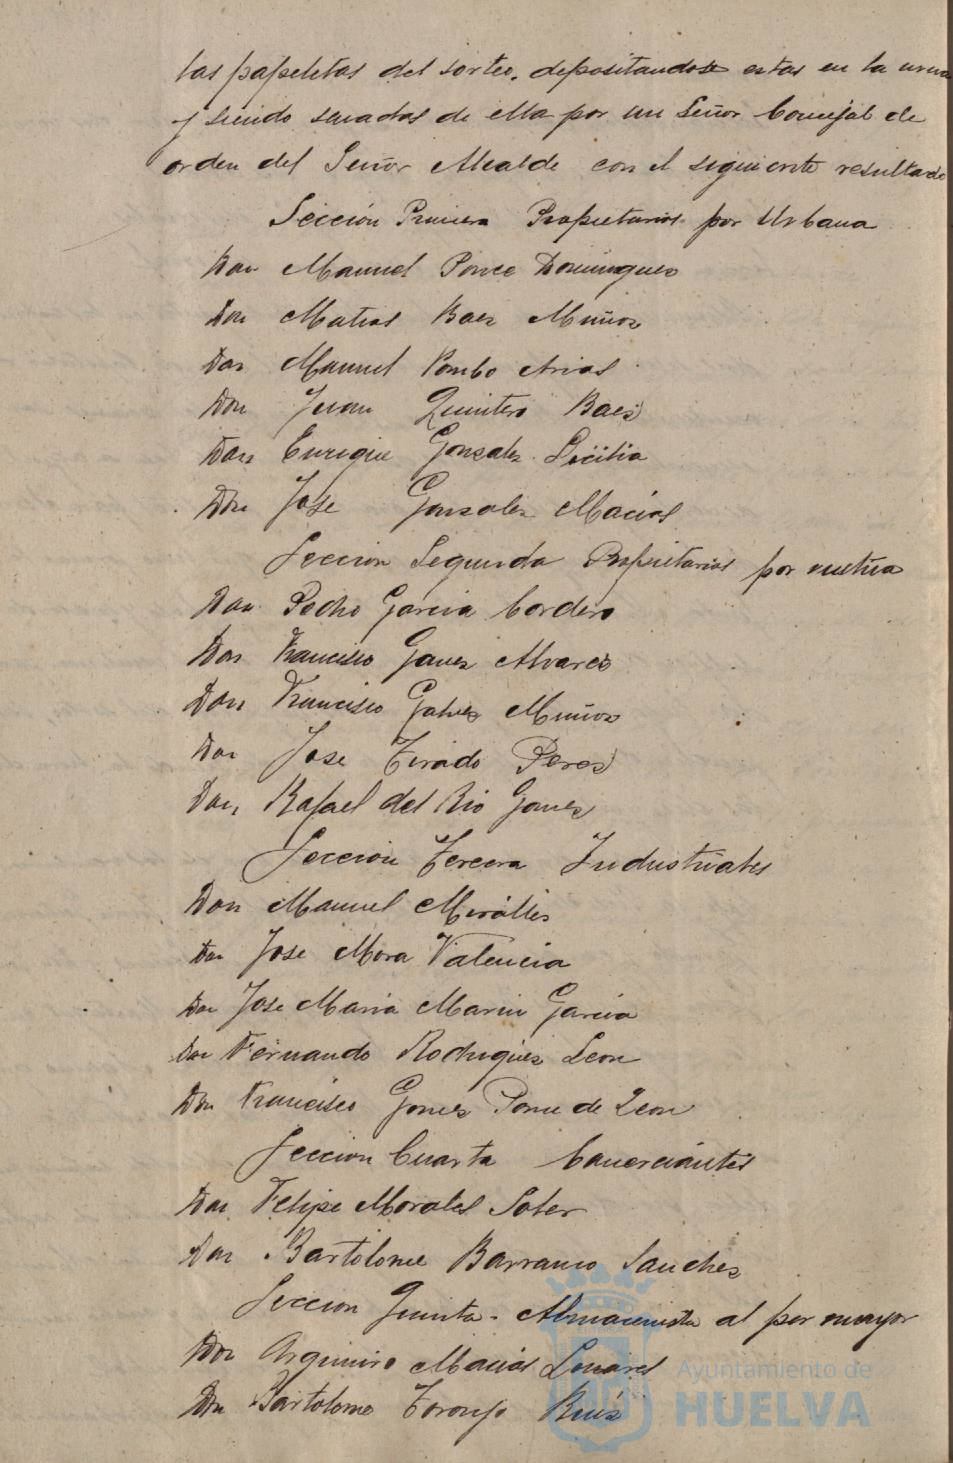 las papeletas del sorteo, depositandose estas en la urna
y siendo sacadas de ella por un Señor Concejal de
orden del Señor Alcalde con el siguiente resultado
Sección Primera Propietarios por Urbana
Don Manuel Ponce Dominguez
Don Matias Baez Muñoz
Don Manuel Pombo Arias
Don Juan Quintero Baez
Don Enrique Gonzalez
Don Jose Gonzalez Macias
Seccion Segunda Propietarios por rustica
Don Pedro Garcia Cordero
Don Francisco Gomez Alvarez
Don Francisco Galvez Muñoz
Don Jose Tirado Perez
Don Rafael del Rio Gomez
Seccion Tercera Industriales
Don Manuel Mirálles
Don Jose Mora Valencia
Don Jose Maria Marin Garcia
Don Fernando Rodriguez Leon
Don Francisco Gomez Ponce de Leon
Seccion Cuarta Comerciantes
Don Felipe Morales Soler
Don Bartolome Barranco Sanchez
Seccion Quinta. Almacenista al por mayor
Don Argimiro Macias Linares
Don Bartolome Toronjo Ruiz
Ayuntamiento de
HUELVA